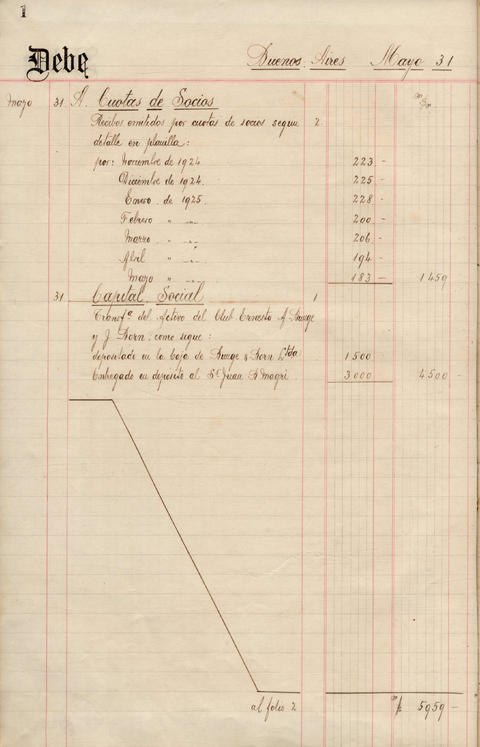 1
Debe Buenos Aires Mayo 31
Mayo 31 A. Cuotas de Socios
Recibos emitidos por cuotas de socios segun 2
detalle en planilla:
por: Noviembre de 1924 223 -
Diciembre de 1924. 225 -
Enero . de 1925 228 -
Febrero " -..- 200 -
Marzo " -..- 206 -
Abril " -..- 194 -
Mayo " -..- 183 - 1459
31 Capital Social 1
Transfª del Activo del Club Ernesto A. Bunge
y J. Born como sigue:
depositado en la Caja de Bunge & Born Ltda 1500
Entregado en deposito al Sr Juan B Magri 3000 4.500 -
al folio 2 5959 -